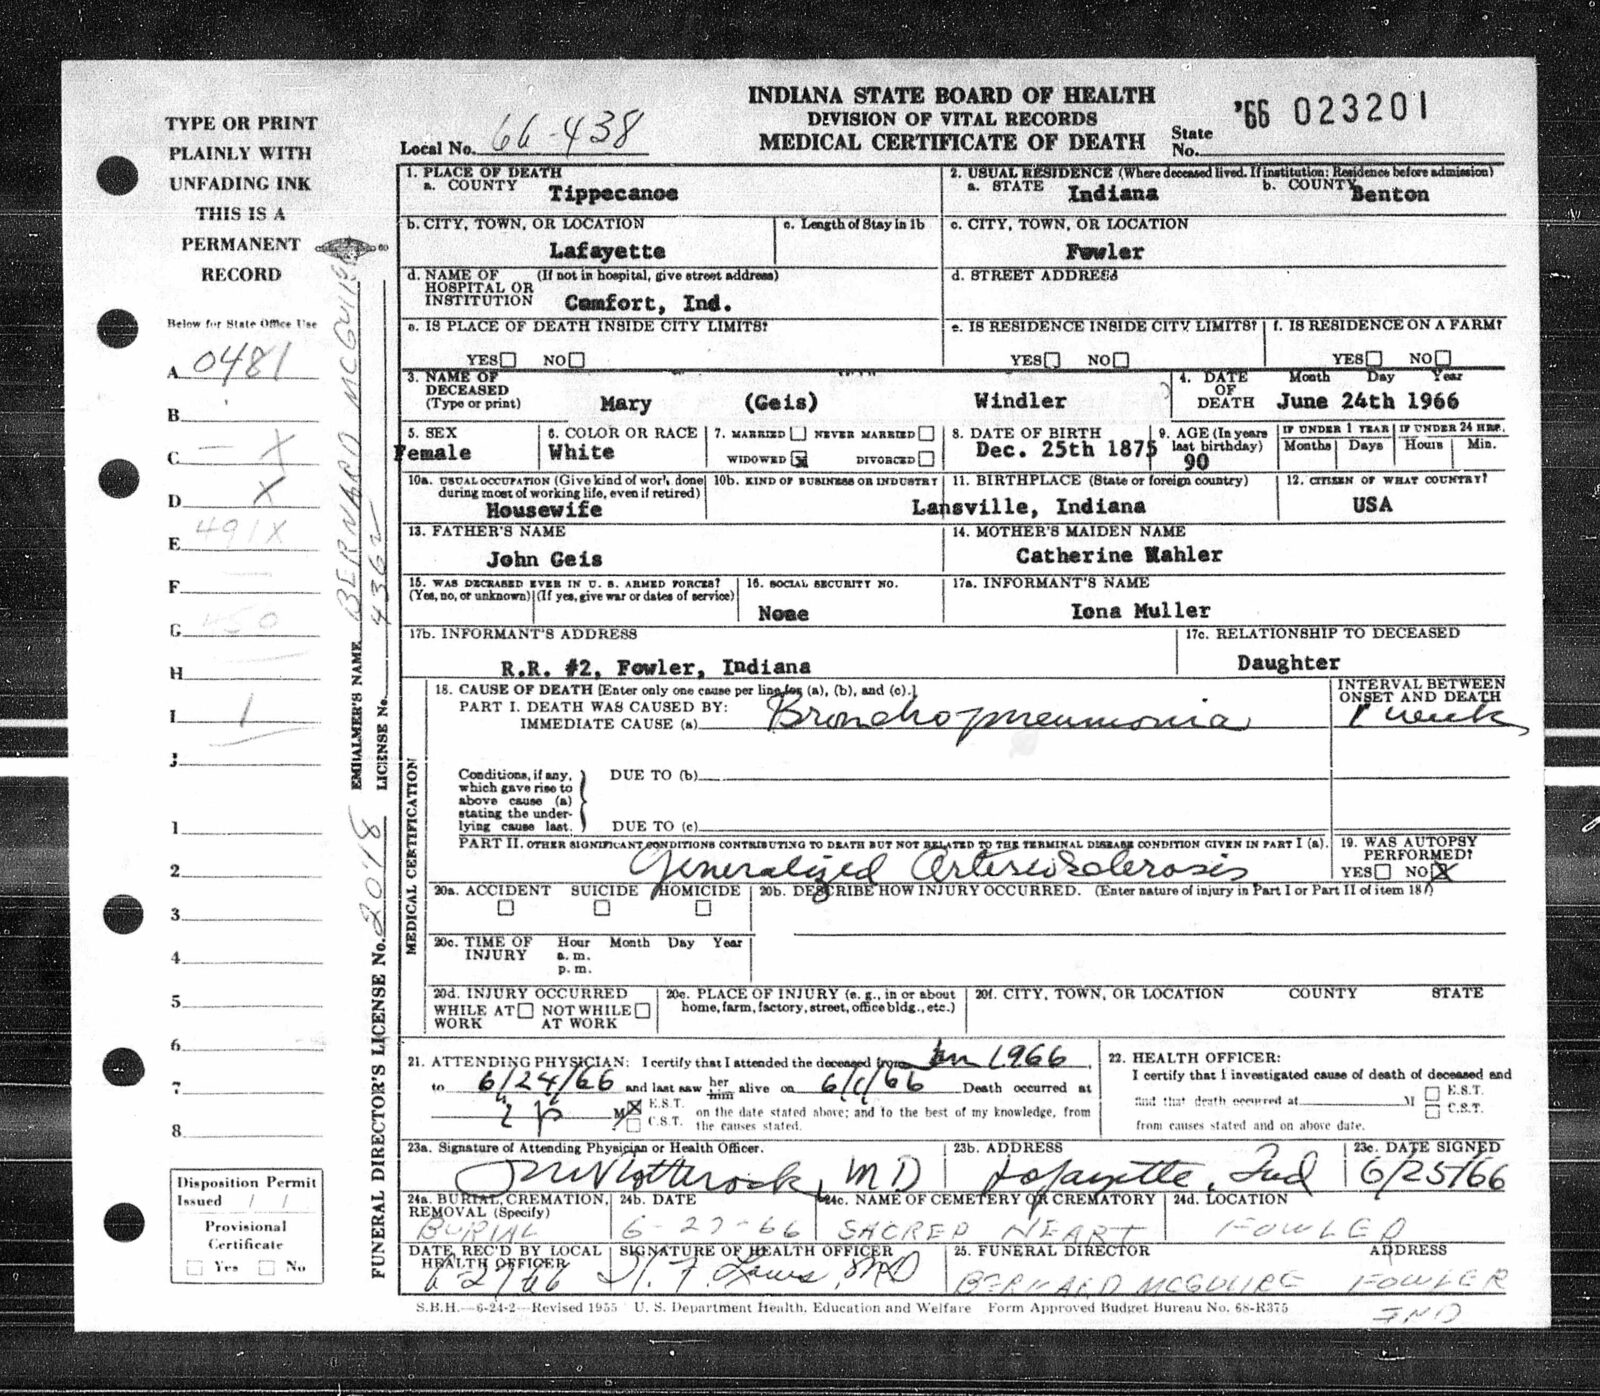 INDIANA STATE BOARD OF HEALTH
DIVISION OF VITAL RECORDS
MEDICAL CERTIFICATE OF DEATH
Local No. 66-438
State No. '66 023201
TYPE OR PRINT
PLAINLY WITH
UNFADING INK
THIS IS A
PERMANENT
RECORD
Below for State Office Use
A 0481
B
C — X
D X
E 491X
F
G
H
I 1
J
1
2
3
4
5
6
7
8
Disposition Permit
Issued / /
Provisional
Certificate
Yes No
EMBALMER'S NAME BERNARD MCGUIRE
LICENSE No. 4362
FUNERAL DIRECTOR'S LICENSE No. 2048
1. PLACE OF DEATH
a. COUNTY Tippecanoe
2. USUAL RESIDENCE (Where deceased lived. If institution: Residence before admission)
a. STATE Indiana b. COUNTY Benton
b. CITY, TOWN, OR LOCATION Lafayette
c. Length of Stay in 1b
c. CITY, TOWN, OR LOCATION Fowler
d. NAME OF HOSPITAL OR INSTITUTION (If not in hospital, give street address) Comfort, Ind.
d. STREET ADDRESS
e. IS PLACE OF DEATH INSIDE CITY LIMITS?
YES NO
e. IS RESIDENCE INSIDE CITY LIMITS?
YES NO
f. IS RESIDENCE ON A FARM?
YES NO
3. NAME OF DECEASED (Type or print) Mary (Geis) Windler
4. DATE OF DEATH Month Day Year June 24th 1966
5. SEX Female
6. COLOR OR RACE White
7. MARRIED NEVER MARRIED
WIDOWED X DIVORCED
8. DATE OF BIRTH Dec. 25th 1875
9. AGE (In years last birthday) 90
IF UNDER 1 YEAR Months Days
IF UNDER 24 HRS. Hours Min.
10a. USUAL OCCUPATION (Give kind of work done during most of working life, even if retired) Housewife
10b. KIND OF BUSINESS OR INDUSTRY
11. BIRTHPLACE (State or foreign country) Lansville, Indiana
12. CITIZEN OF WHAT COUNTRY? USA
13. FATHER'S NAME John Geis
14. MOTHER'S MAIDEN NAME Catherine Mahler
15. WAS DECEASED EVER IN U. S. ARMED FORCES?
(Yes, no, or unknown) (If yes, give war or dates of service)
16. SOCIAL SECURITY NO. None
17a. INFORMANT'S NAME Iona Muller
17b. INFORMANT'S ADDRESS R.R. #2, Fowler, Indiana
17c. RELATIONSHIP TO DECEASED Daughter
MEDICAL CERTIFICATION
18. CAUSE OF DEATH [Enter only one cause per line for (a), (b), and (c).]
PART I. DEATH WAS CAUSED BY:
IMMEDIATE CAUSE (a) Bronchopneumonia
INTERVAL BETWEEN ONSET AND DEATH 1 week
Conditions, if any, which gave rise to above cause (a) stating the underlying cause last.
DUE TO (b)
DUE TO (c)
PART II. OTHER SIGNIFICANT CONDITIONS CONTRIBUTING TO DEATH BUT NOT RELATED TO THE TERMINAL DISEASE CONDITION GIVEN IN PART I (a).
Generalized Arteriosclerosis
19. WAS AUTOPSY PERFORMED?
YES NO X
20a. ACCIDENT SUICIDE HOMICIDE
20b. DESCRIBE HOW INJURY OCCURRED. (Enter nature of injury in Part I or Part II of item 18.)
20c. TIME OF INJURY Hour Month Day Year
a. m.
p. m.
20d. INJURY OCCURRED
WHILE AT WORK NOT WHILE AT WORK
20e. PLACE OF INJURY (e. g., in or about home, farm, factory, street, office bldg., etc.)
20f. CITY, TOWN, OR LOCATION COUNTY STATE
21. ATTENDING PHYSICIAN: I certify that I attended the deceased from Jan 1966
to 6/24/66 and last saw her him alive on 6/1/66 Death occurred at
2 p M X E.S.T. C.S.T. on the date stated above; and to the best of my knowledge, from the causes stated.
22. HEALTH OFFICER:
I certify that I investigated cause of death of deceased and
find that death occurred at M E.S.T. C.S.T.
from causes stated and on above date.
23a. Signature of Attending Physician or Health Officer. MD
23b. ADDRESS Lafayette, Ind
23c. DATE SIGNED 6/25/66
24a. BURIAL, CREMATION, REMOVAL (Specify) BURIAL
24b. DATE 6-27-66
24c. NAME OF CEMETERY OR CREMATORY SACRED HEART
24d. LOCATION FOWLER
DATE REC'D BY LOCAL HEALTH OFFICER
SIGNATURE OF HEALTH OFFICER MD
25. FUNERAL DIRECTOR BERNARD MCGUIRE
ADDRESS FOWLER IND
S.B.H.—6-24-2—Revised 1955 U. S. Department Health, Education and Welfare Form Approved Budget Bureau No. 68-R375